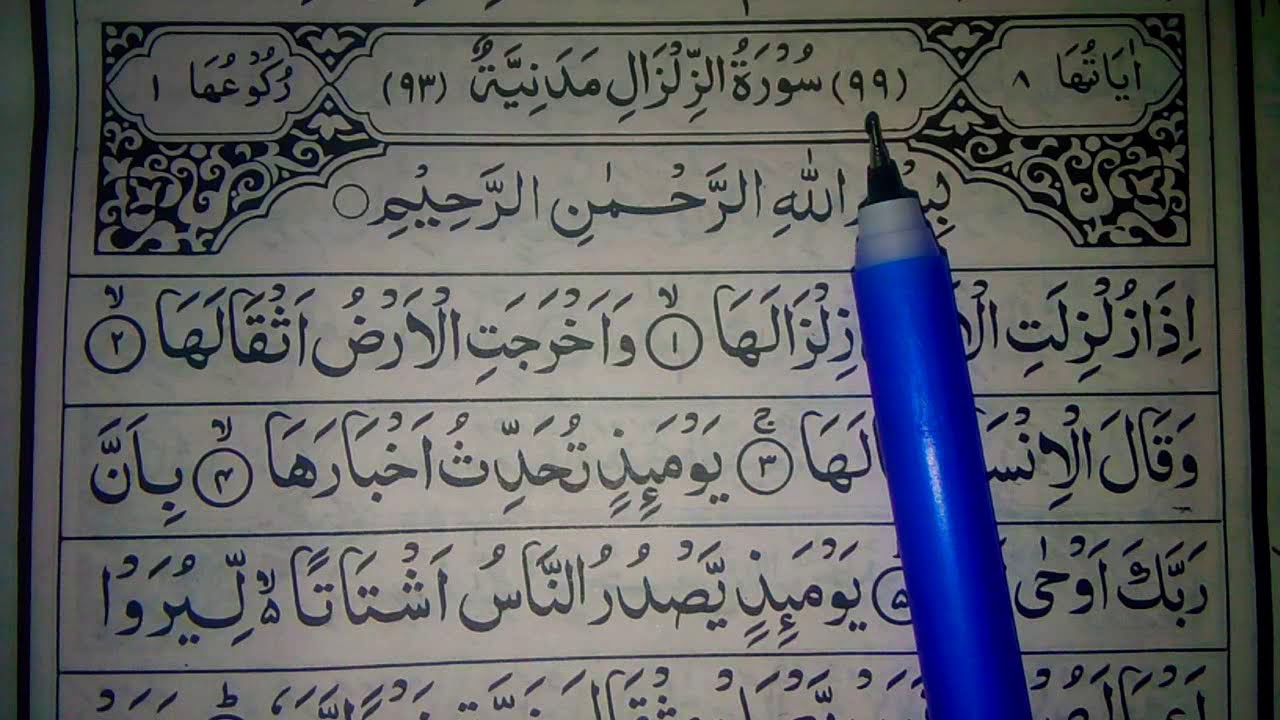 اٰيَاتُهَا ٨ (٩٩) سُوْرَةُ الزِّلْزَالِ مَدَنِيَّةٌ (٩٣) رُكُوْعُهَا ١
اللّٰهِ الرَّحْمٰنِ الرَّحِيْمِ
اِذَا زُلْزِلَتِ زِلْزَالَهَا ۙ﴿١﴾ وَاَخْرَجَتِ الْاَرْضُ اَثْقَالَهَا ۙ﴿٢﴾
وَقَالَ الْاِنْسَ لَهَا ۚ﴿٣﴾ يَوْمَئِذٍ تُحَدِّثُ اَخْبَارَهَا ۙ﴿٤﴾ بِاَنَّ
رَبَّكَ اَوْحٰى ﴿٥﴾ يَوْمَئِذٍ يَّصْدُرُ النَّاسُ اَشْتَاتًا ۙ۬ لِّيُرَوْا